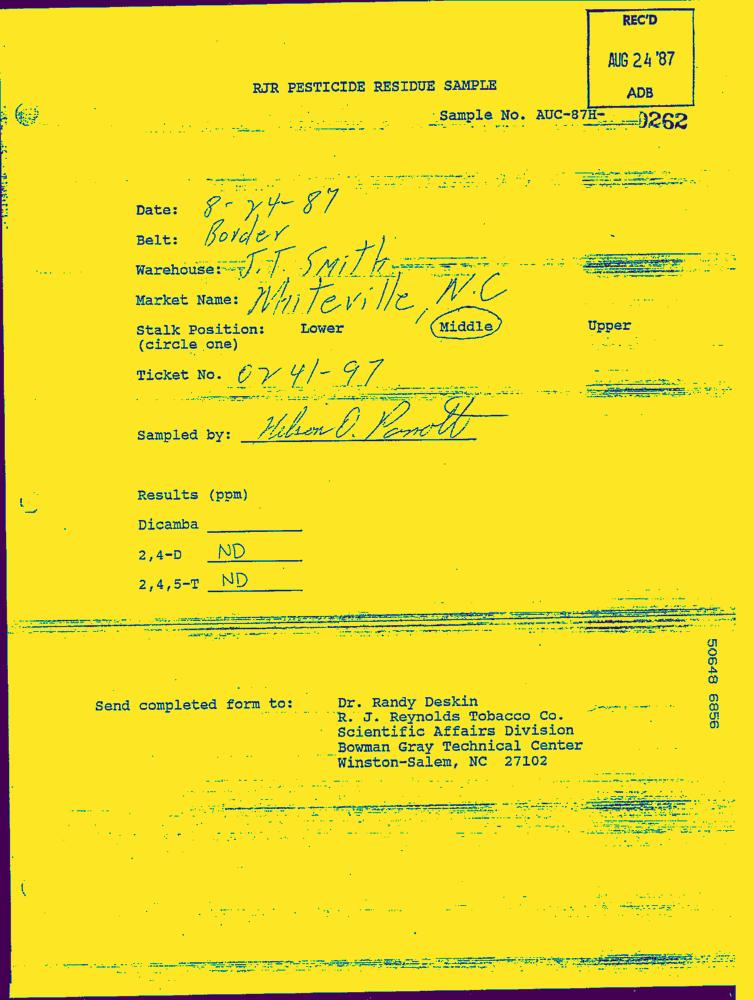 REC'D
AUG 24 '87
ADB
RJR PESTICIDE RESIDUE SAMPLE
Sample No. AUC-87H- 0262
Date: 8-24-87
Belt: Border
Warehouse: J.T. Smith
Market Name: Whiteville, N.C
Stalk Position: Lower Middle Upper
(circle one)
Ticket No. 0241-97
Sampled by: O.
Results (ppm)
Dicamba
2,4-D ND
2,4,5-T ND
50648 6856
Send completed form to: Dr. Randy Deskin
R. J. Reynolds Tobacco Co.
Scientific Affairs Division
Bowman Gray Technical Center
Winston-Salem, NC 27102